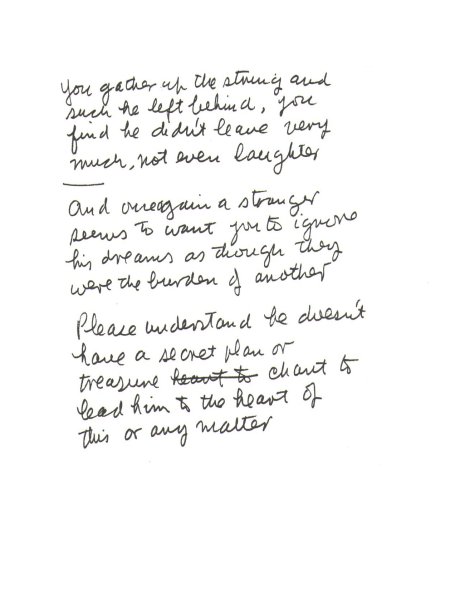 You gather up the string and
such he left behind, you
find he didn't leave very
much, not even laughter
And once again a stranger
seems to want you to ignore
his dreams as though they
were the burden of another
Please understand he doesn't
have a secret plan or
treasure heart to chart to
lead him to the heart of
this or any matter